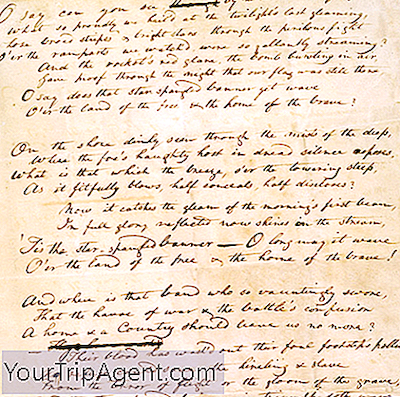 O say can you see ~~through~~ by
What so proudly we hail'd at the twilight's last gleaming,
Whose broad stripes & bright stars through the perilous fight
O'er the ramparts we watch'd, were so gallantly streaming?
And the rocket's red glare, the bomb bursting in air,
Gave proof through the night that our flag was still there
O say does that star-spangled banner yet wave
O'er the land of the free & the home of the brave?
On the shore dimly seen through the mists of the deep,
Where the foe's haughty host in dread silence reposes,
What is that which the breeze, o'er the towering steep,
As it fitfully blows, half conceals, half discloses?
Now it catches the gleam of the morning's first beam,
In full glory reflected now shines in the stream,
'Tis the star-spangled banner — O long may it wave
O'er the land of the free & the home of the brave!
And where is that band who so vauntingly swore,
That the havoc of war & the battle's confusion
A home & a Country should leave us no more?
Their blood has wash'd out their foul footsteps pollu
the hireling & slave
From the terror of flight or the gloom of the grave,
YourTripAgent.com